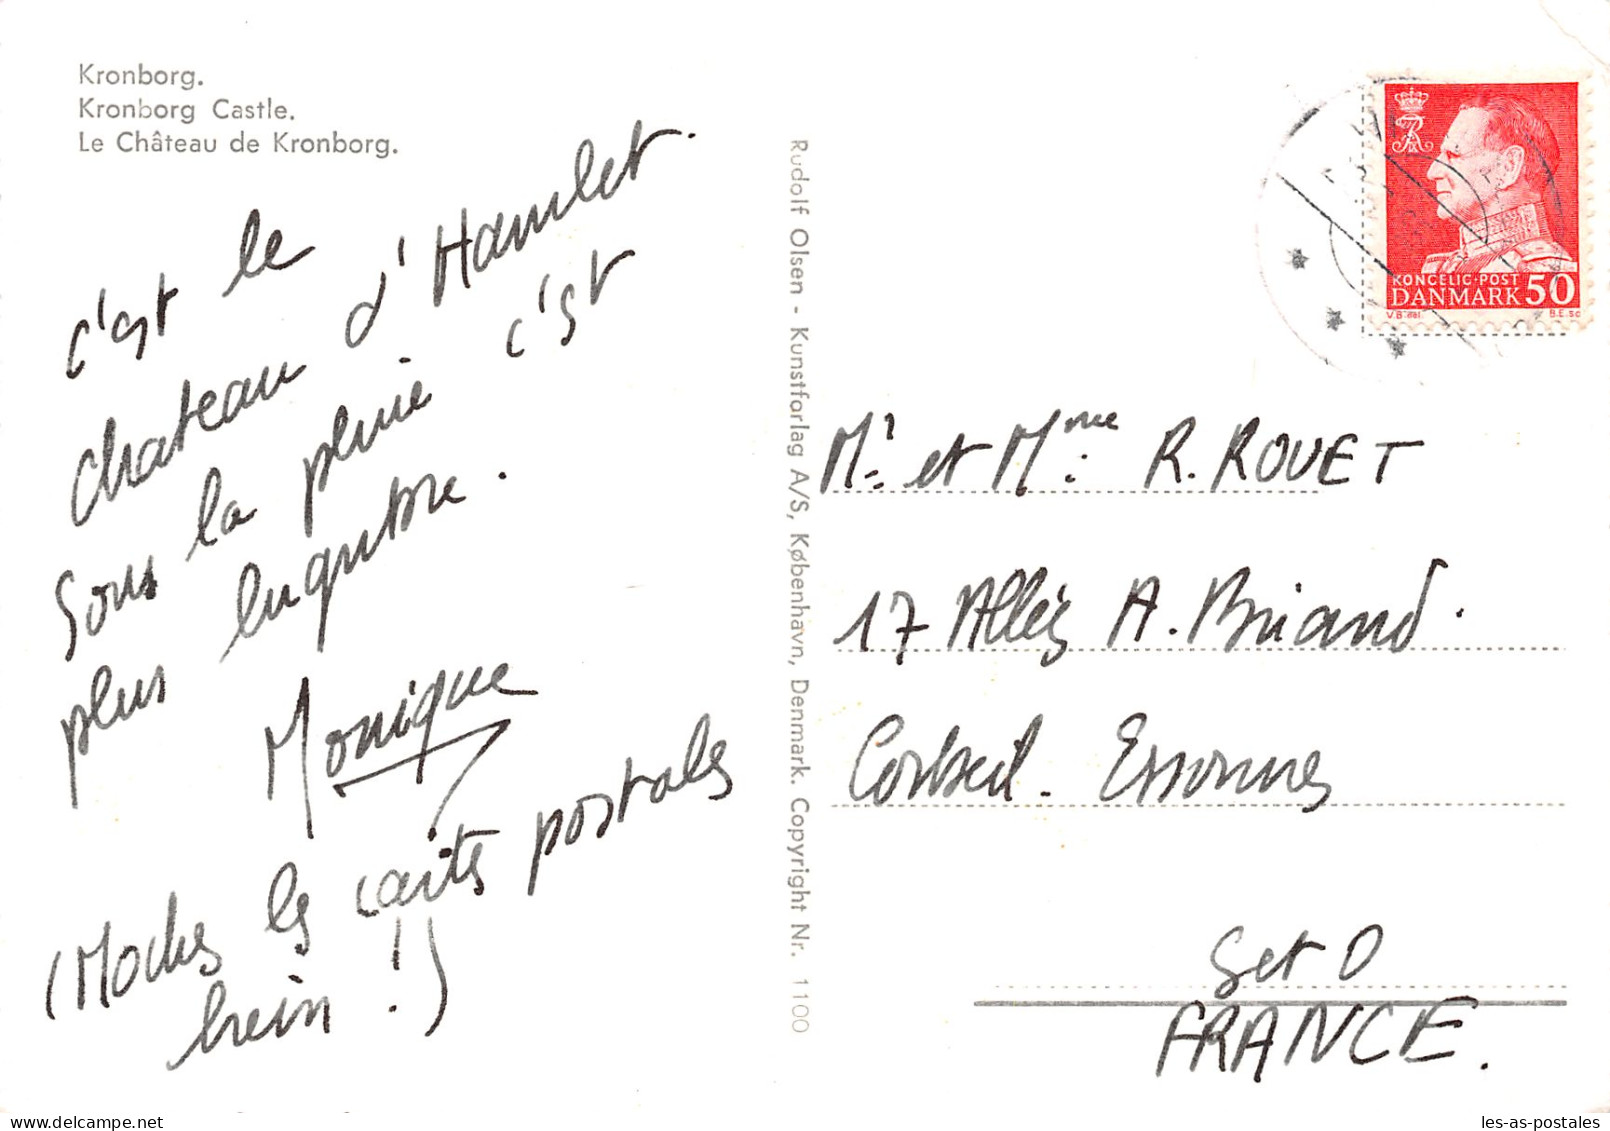 Kronborg.
Kronborg Castle.
Le Château de Kronborg.
c'est le
chateau d'Hamlet.
Sous la pluie c'est
plus lugubre.
Monique
(Moches les cartes postales
hein !)
Rudolf Olsen - Kunstforlag A/S, København, Denmark. Copyright Nr. 1100
KONGELIG·POST
DANMARK 50
V.B. del.
B.E. sc
Mr et Mme R. ROUET
17 Allées A. Briand.
Corbeil. Essonnes
Set O
FRANCE.
les-as-postales